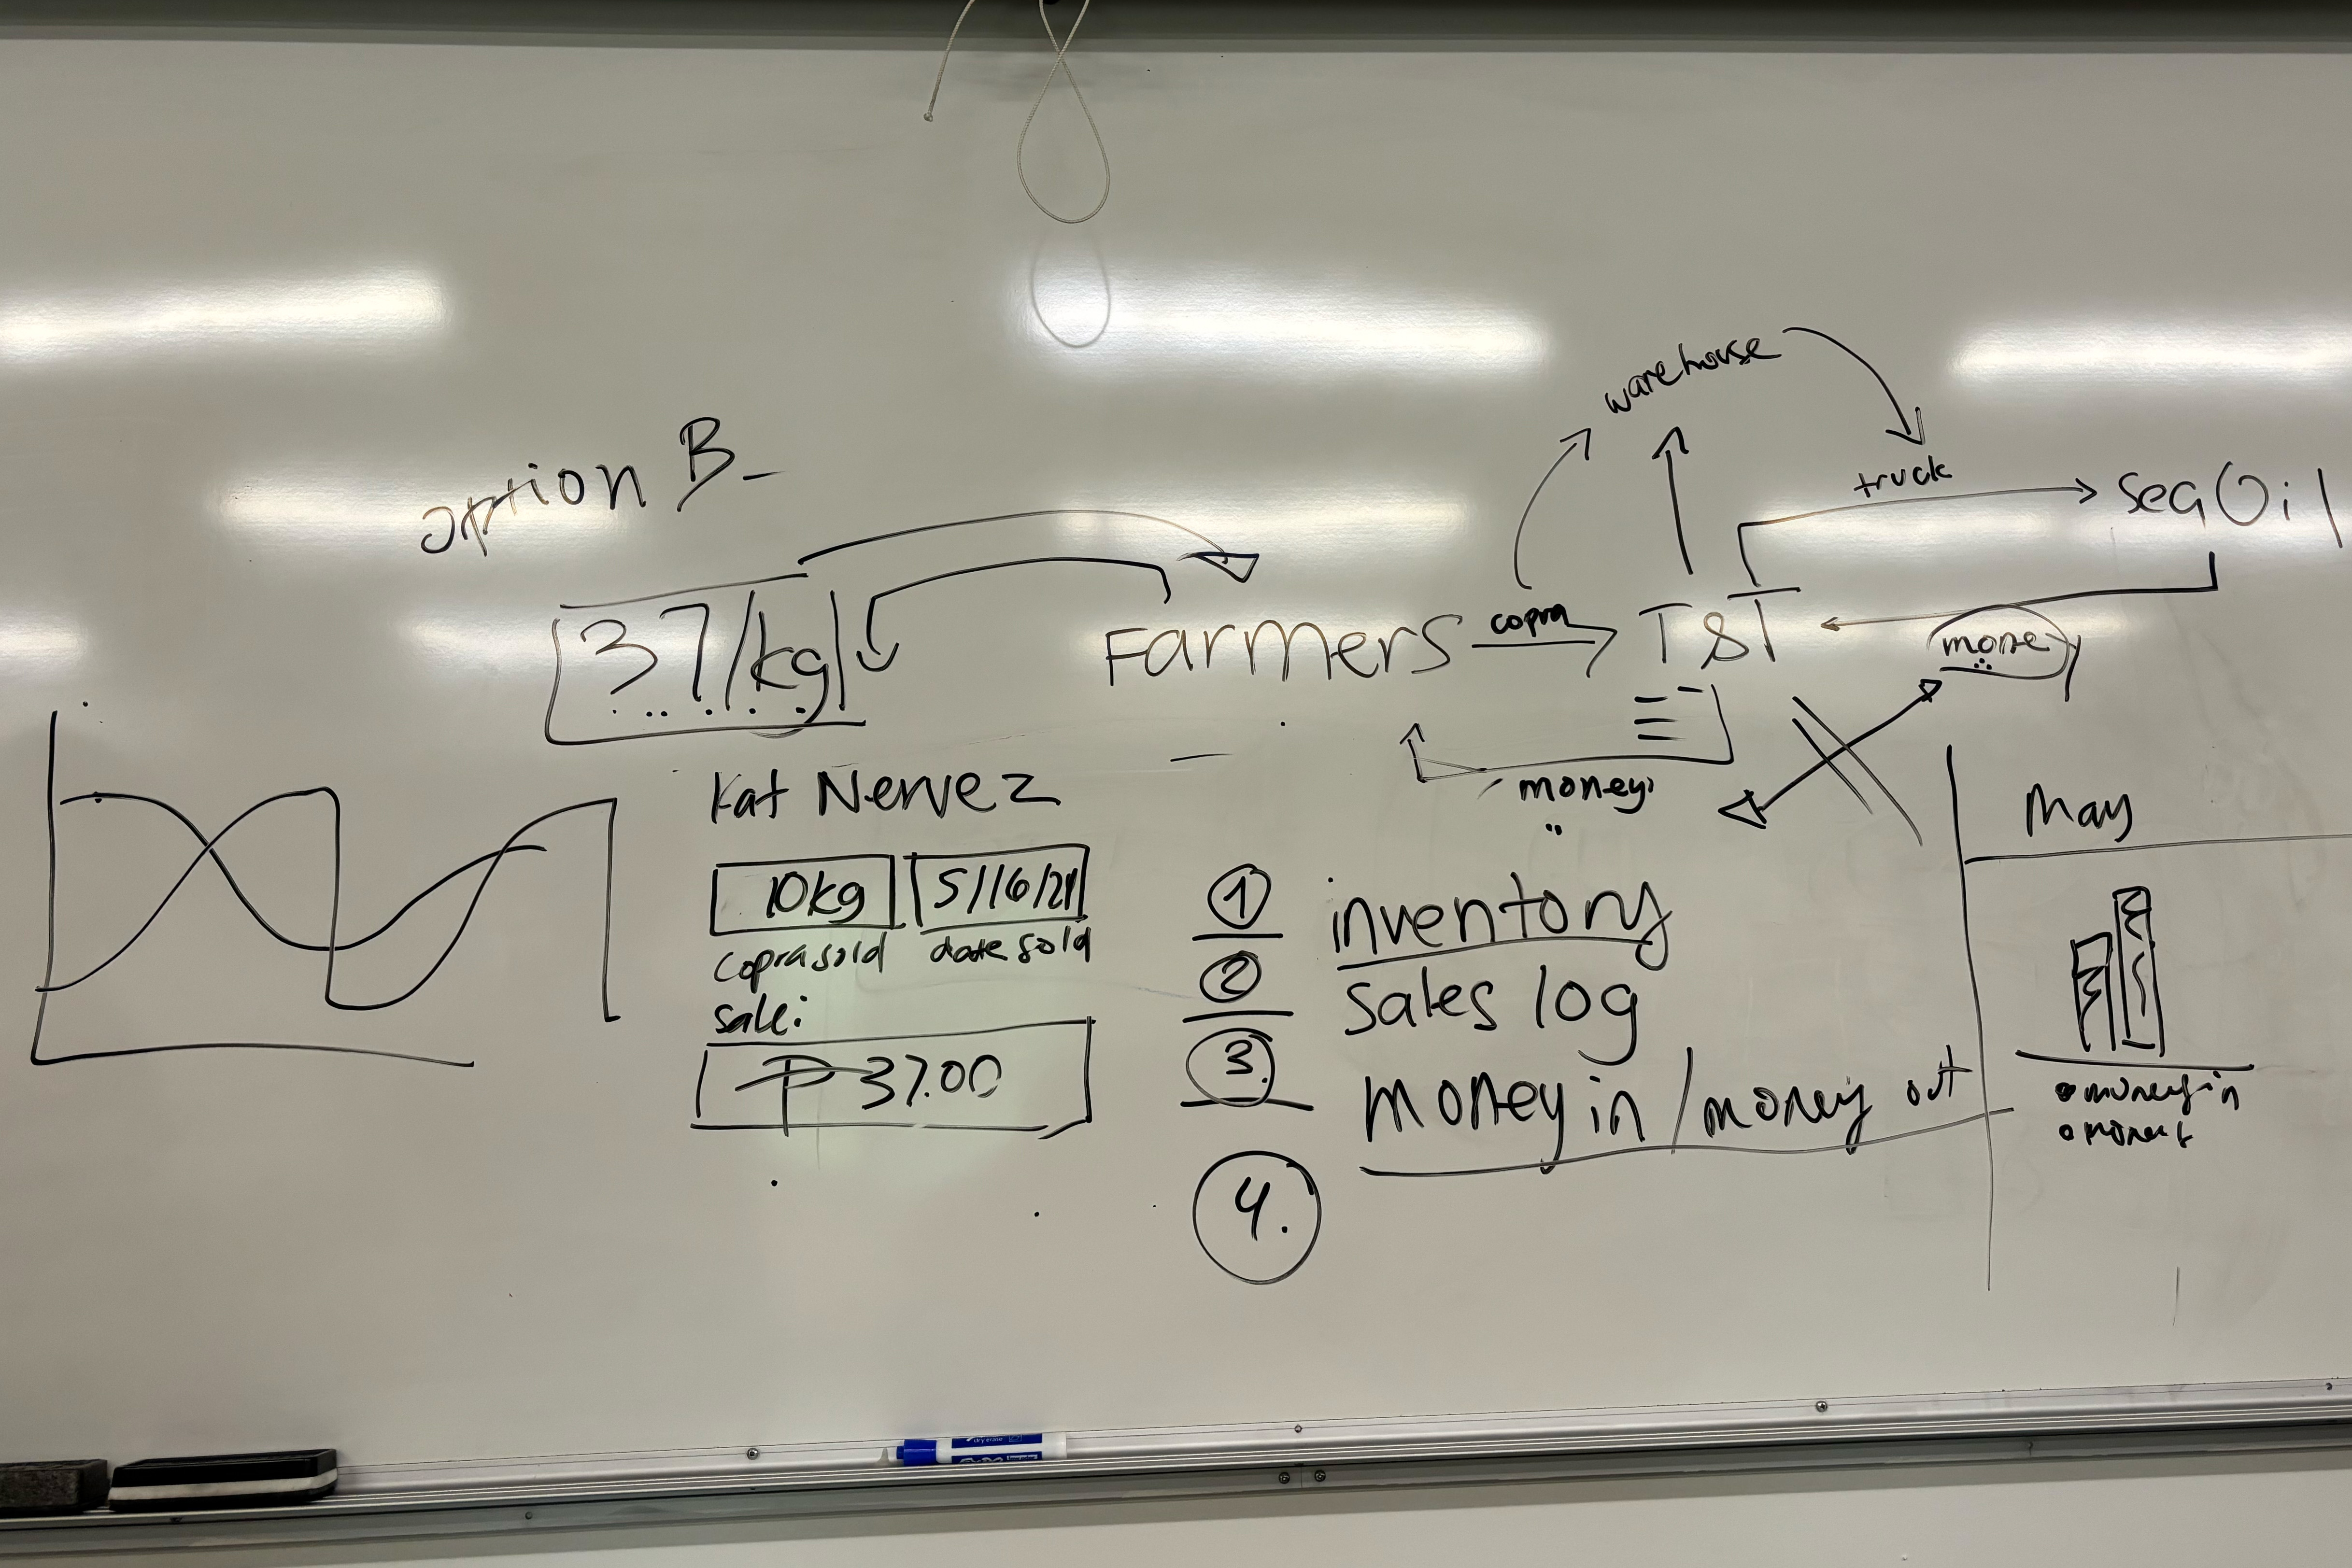 option B-
37/kg
Farmers
copra
TST
warehouse
truck
seaOil
money
money
Kat Nervez
10kg
5/16/24
copra sold
date sold
sale:
₱ 37.00
1 inventory
2 sales log
3. money in / money out
4.
May
money in